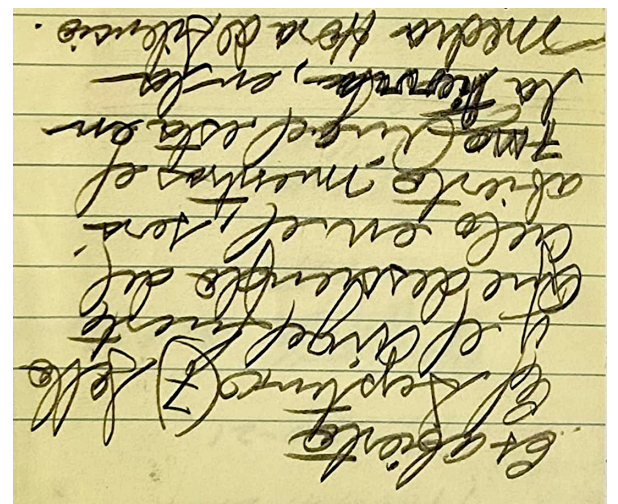 Es abierto
El Septimo (7) Sello
y el Angel fuerte
que desciende del
cielo en el, será
abierto mientras el
7mo Angel está en
la Tierra, en la
media Hora de silencio.